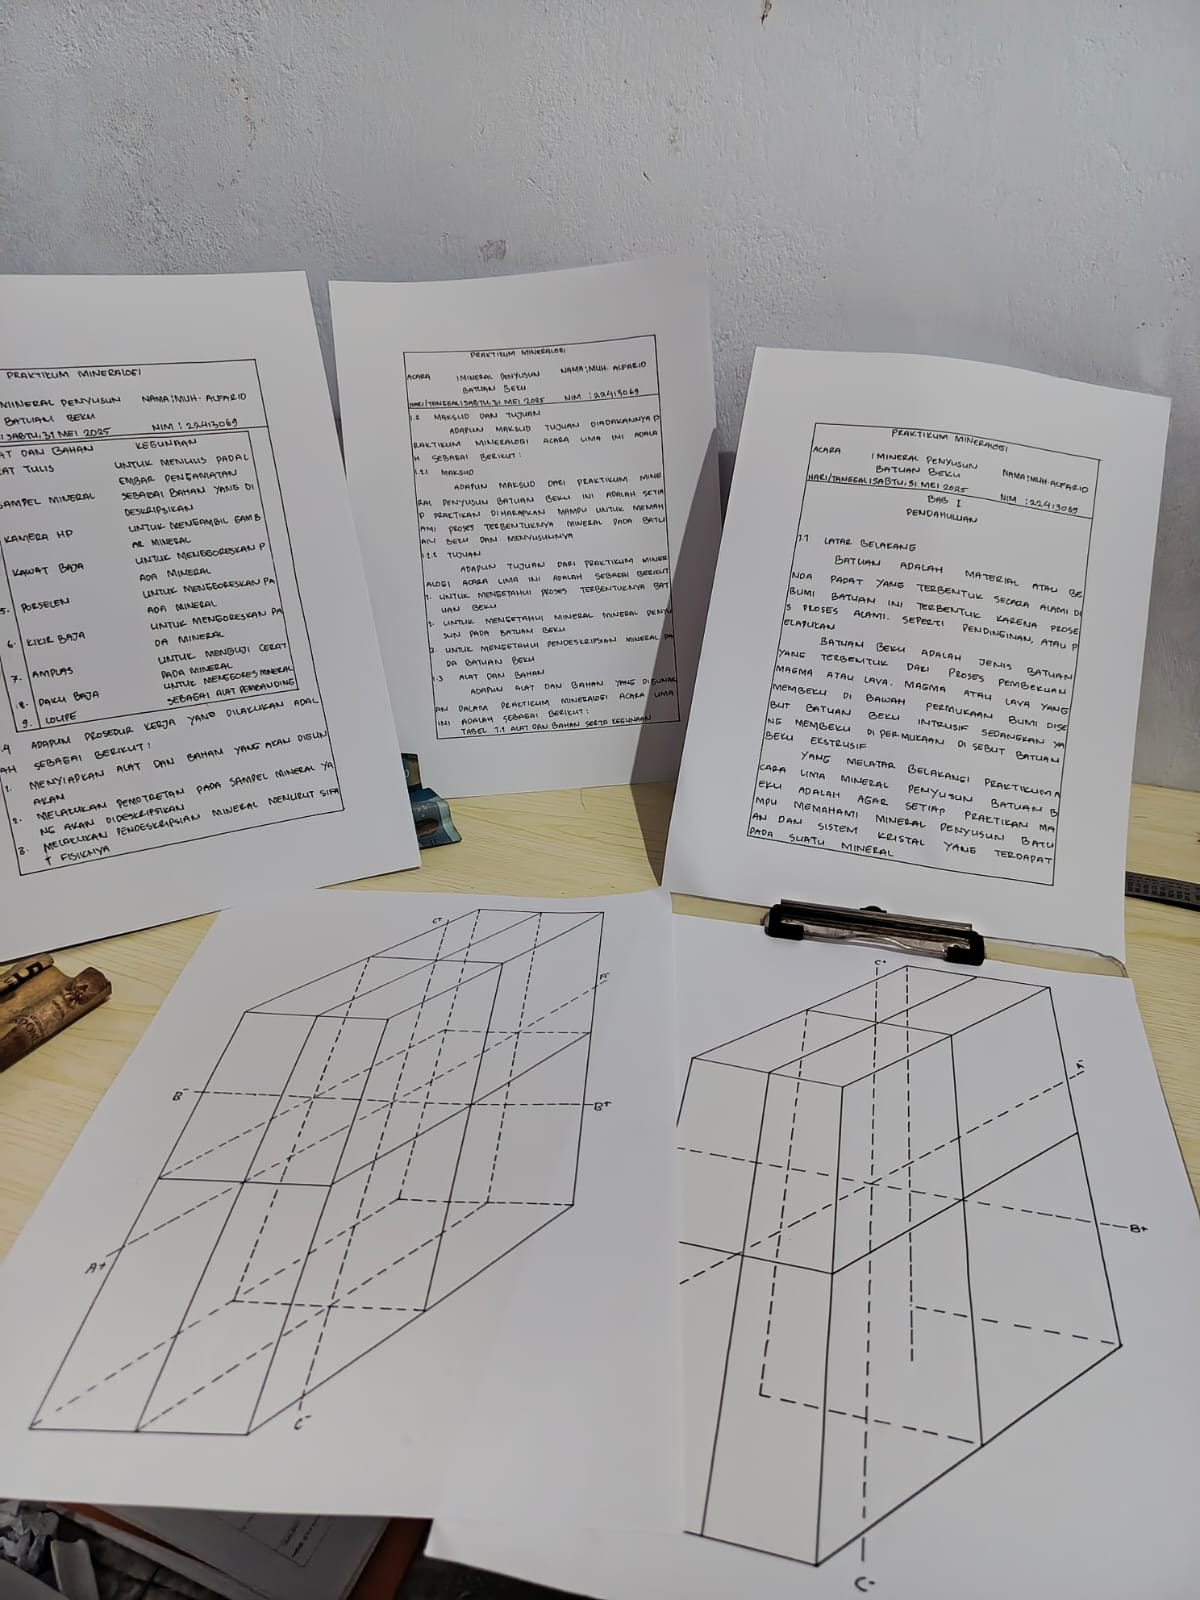 PRAKTIKUM MINERALOGI
MINERAL PENYUSUN NAMA: MUH. ALFARID
BATUAN BEKU
SABTU, 31 MEI 2025 NIM : 22413069
AT DAN BAHAN KEGUNAAN
AT TULIS UNTUK MENULIS PADA L
EMBAR PENGAMATAN
SAMPEL MINERAL SEBAGAI BAHAN YANG DI
DESKRIPSIKAN
KAMERA HP UNTUK MENGAMBIL GAMB
AR MINERAL
KAWAT BAJA UNTUK MENGGORESKAN P
ADA MINERAL
5. PORSELEN UNTUK MENGGORESKAN PA
DA MINERAL
6. KIKIR BAJA UNTUK MENGORESKAN PA
DA MINERAL
7. AMPLAS UNTUK MENGUJI CERAT
PADA MINERAL
8. PAKU BAJA UNTUK MENGGORES MINERAL
9. LOUPE SEBAGAI ALAT PEMBANDING
.4 ADAPUN PROSEDUR KERJA YANG DILAKUKAN ADAL
AH SEBAGAI BERIKUT :
1. MENYIAPKAN ALAT DAN BAHAN YANG AKAN DIGUN
AKAN
2. MELAKUKAN PEMOTRETAN PADA SAMPEL MINERAL YA
NG AKAN DIDESKRIPSIKAN
3. MELAKUKAN PENDESKRIPSIAN MINERAL MENURUT SIFA
T FISIKNYA
PRAKTIKUM MINERALOGI
ACARA : MINERAL PENYUSUN NAMA : MUH. ALFARID
BATUAN BEKU
HARI/TANGGAL : SABTU, 31 MEI 2025 NIM : 22413069
1.2 MAKSUD DAN TUJUAN
ADAPUN MAKSUD TUJUAN DIADAKANNYA P
RAKTIKUM MINERALOGI ACARA LIMA INI ADALA
H SEBAGAI BERIKUT :
1.2.1 MAKSUD
ADAPUN MAKSUD DARI PRAKTIKUM MINE
RAL PENYUSUN BATUAN BEKU INI ADALAH SETIA
P PRAKTIKAN DIHARAPKAN MAMPU UNTUK MEMAH
AMI PROSES TERBENTUKNYA MINERAL PADA BATU
AN BEKU DAN MENYUSUNNYA
1.2.2 TUJUAN
ADAPUN TUJUAN DARI PRAKTIKUM MINER
ALOGI ACARA LIMA INI ADALAH SEBAGAI BERIKUT
1. UNTUK MENGETAHUI PROSES TERBENTUKNYA BAT
UAN BEKU
2. UNTUK MENGETAHUI MINERAL MINERAL PENYU
SUN PADA BATUAN BEKU
3. UNTUK MENGETAHUI PENDESKRIPSIAN MINERAL PA
DA BATUAN BEKU
1.3 ALAT DAN BAHAN
ADAPUN ALAT DAN BAHAN YANG DIGUNAK
AN DALAM PRAKTICUM MINERALOGI ACARA LIMA
INI ADALAH SEBAGAI BERIKUT :
TABEL 1.1 ALAT DAN BAHAN SERTA KEGUNAAN
PRAKTIKUM MINERALOGI
ACARA : MINERAL PENYUSUN NAMA: MUH. ALFARID
BATUAN BEKU
HARI/TANGGAL : SABTU, 31 MEI 2025 NIM : 22413069
BAB I
PENDAHULUAN
1.1 LATAR BELAKANG
BATUAN ADALAH MATERIAL ATAU BE
NDA PADAT YANG TERBENTUK SECARA ALAMI DI
BUMI BATUAN INI TERBENTUK KARENA PROSE
S PROSES ALAMI. SEPERTI PENDINGINAN, ATAU P
ELAPUKAN
BATUAN BEKU ADALAH JENIS BATUAN
YANG TERBENTUK DARI PROSES PEMBEKUAN
MAGMA ATAU LAVA. MAGMA ATAU LAVA YANG
MEMBEKU DI BAWAH PERMUKAAN BUMI DISE
BUT BATUAN BEKU INTRUSIF SEDANGKAN YA
NG MEMBEKU DI PERMUKAAN DI SEBUT BATUAN
BEKU EKSTRUSIF
YANG MELATAR BELAKANGI PRAKTIKUM A
CARA LIMA MINERAL PENYUSUN BATUAN B
EKU ADALAH AGAR SETIAP PRAKTIKAN MA
MPU MEMAHAMI MINERAL PENYUSUN BATU
AN DAN SISTEM KRISTAL YANG TERDAPAT
PADA SUATU MINERAL
C+
A-
B-
B+
A+
C-
C+
A-
B+
C-